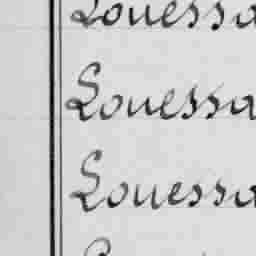 Louessa
Louessa
Louessa